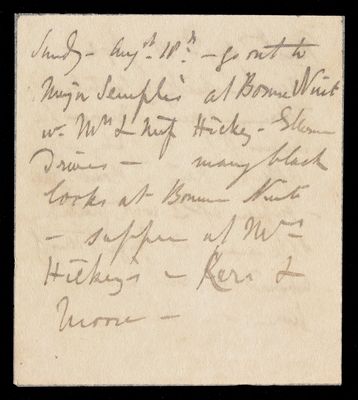 Sunday - Augst. 18th. - go out to
Major Semple's at Bonne Nuit
w. Mrs & Miss Hickey -
drives - many black
looks at Bonne Nuit
- supper at Mrs
Hickeys - Kers &
Moore -